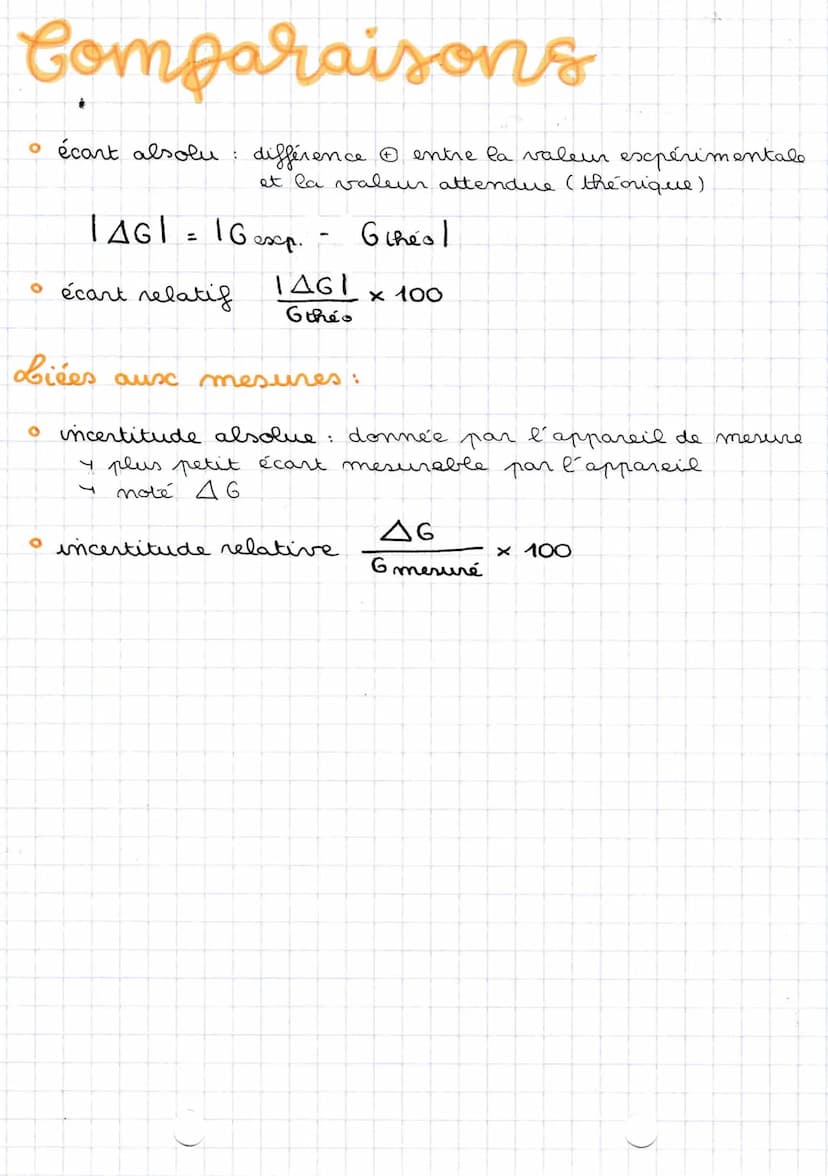 Comparaisons
• écart absolu : différence ⊕ entre la valeur expérimentale
et la valeur attendue (théorique)
|ΔG| = |G exp. - G théo|
• écart relatif |ΔG| / G théo × 100
Liées aux mesures :
• incertitude absolue : donnée par l'appareil de mesure
↳ plus petit écart mesurable par l'appareil
↳ noté ΔG
• incertitude relative ΔG / G mesuré × 100